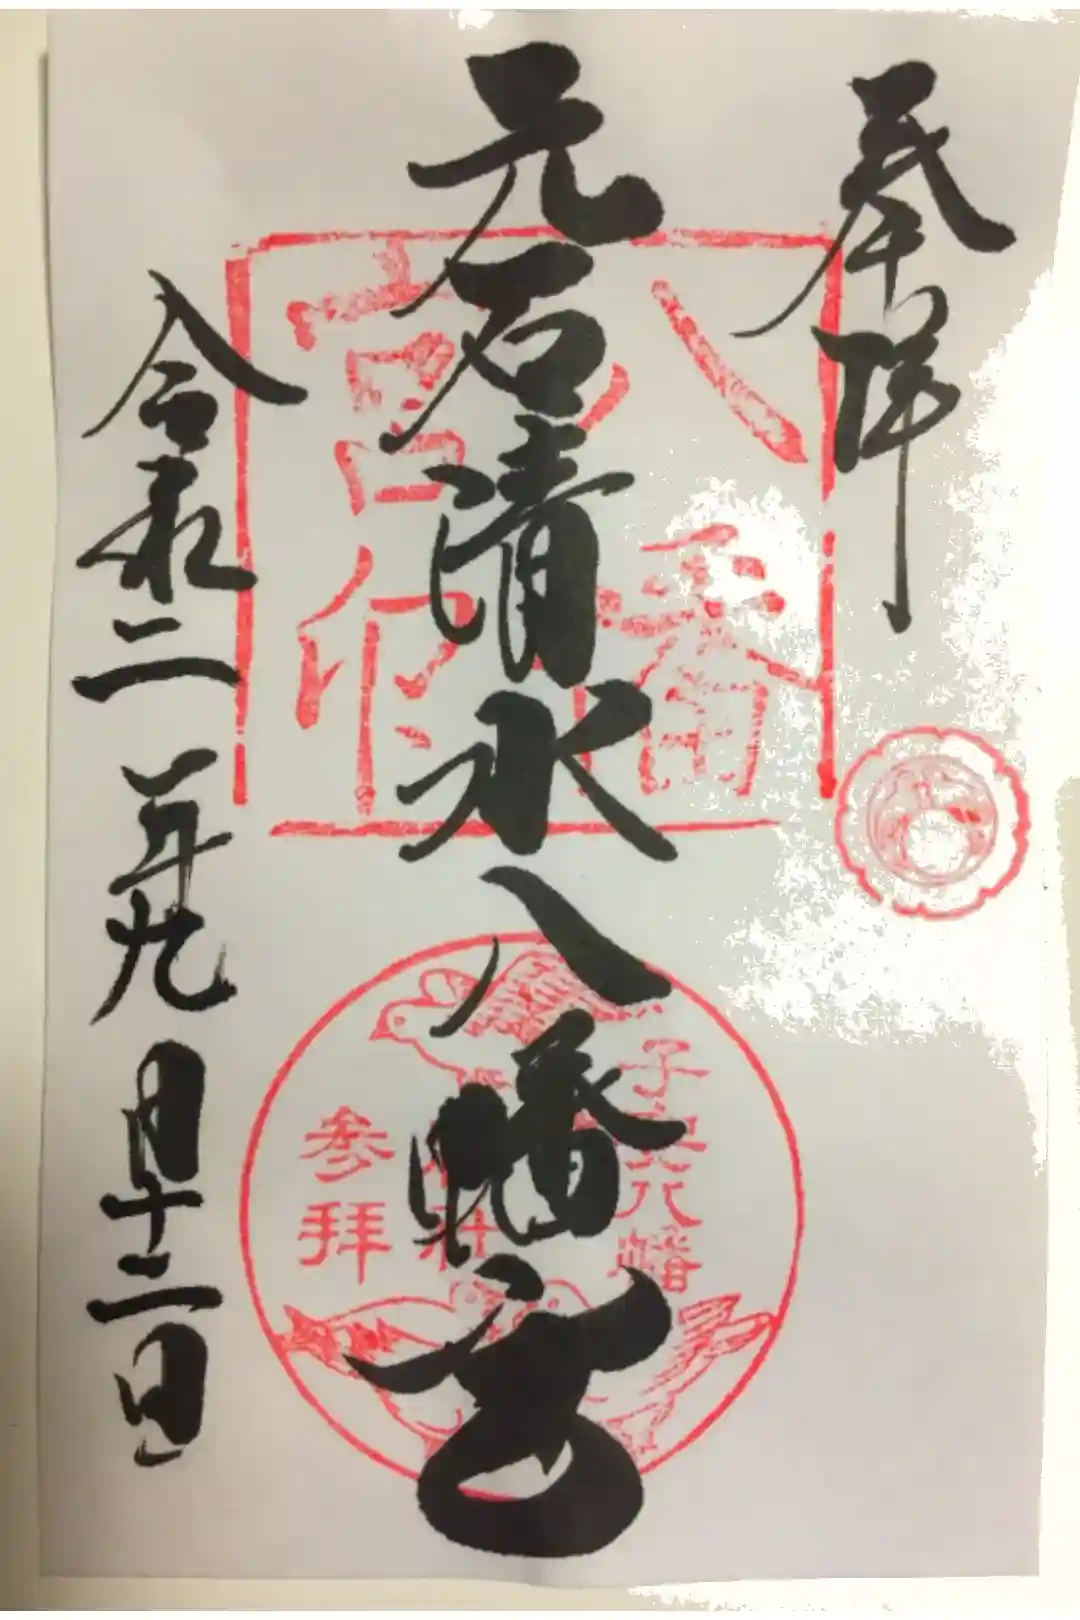 奉拝
元石清水八幡宮
令和二年九月十二日
八幡宮印
参拝